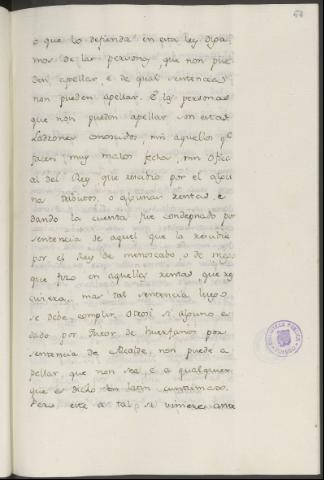 o que lo defienda en esta ley diga
mos de las personas, que non pue
den apellar e de qual sentencias
non pueden apellar. E las personas
que non pueden apellar son estas
Ladrones conoscidos, nin aquellos q.e
facen muy malos fechos, nin Ofici
al del Rey, que recibio por el algu
na tributos, o algunas rentas, e
dando la cuenta fue condepnado por
sentencia de aquel que la recibie
por el Rey de menoscabo, o de mas
que fizo en aquellas rentas que
mas tal sentencia luego
se debe complir, otrosi si alguno es
dado por Tutor de huerfanos por
sentencia de Alcalde, non puede a
pellar, que non sea, e a qualquier
que es dicho en latin
Pero este a tal, si viniere ante